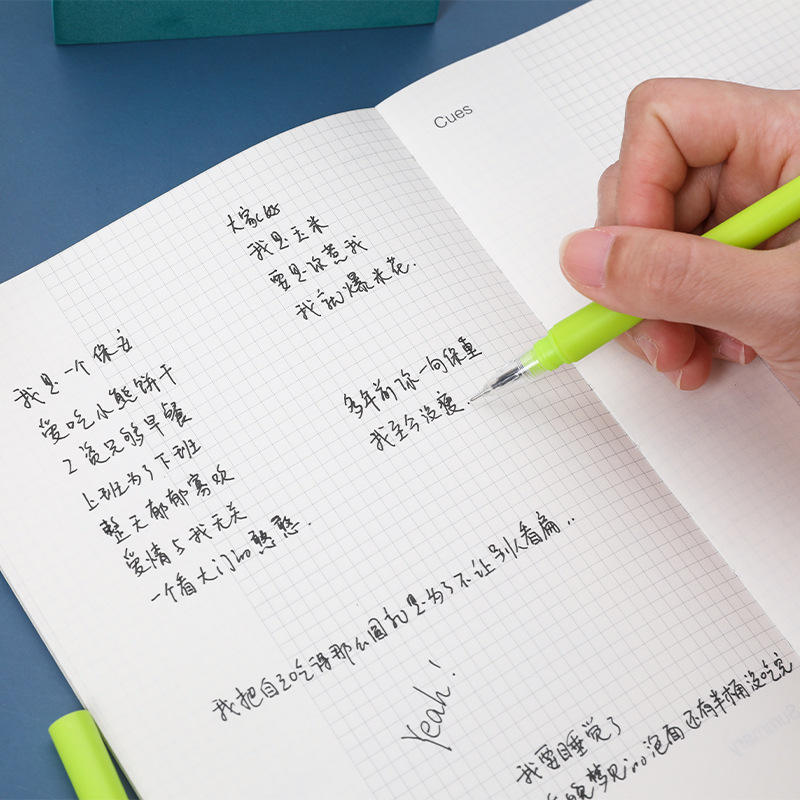 Cues
大家好
我是玉米
要是你惹我
我就爆米花.
我是一个保立
爱吃小熊饼干
2瓷兄够早餐
上班为了下班
整天郁郁寡欢
爱情与我无关
一个看大门的憨憨.
多年前你一句保重
我至今没瘦.
我把自己吃得那么圆就是为了不让别人看扁..
Yeah!
我要睡觉了
昨晚梦见的泡面还有半桶没吃完
Summary